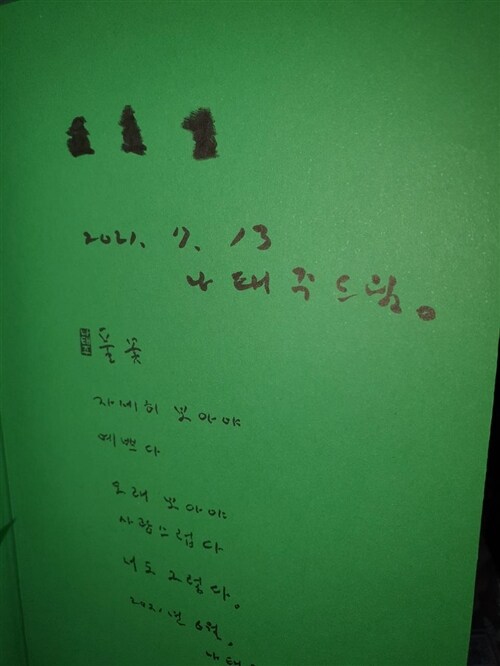 2021. 7. 13
나태주 드림.
풀꽃
자세히 보아야
예쁘다
오래 보아야
사랑스럽다
너도 그렇다.
2021년 6월.
나태